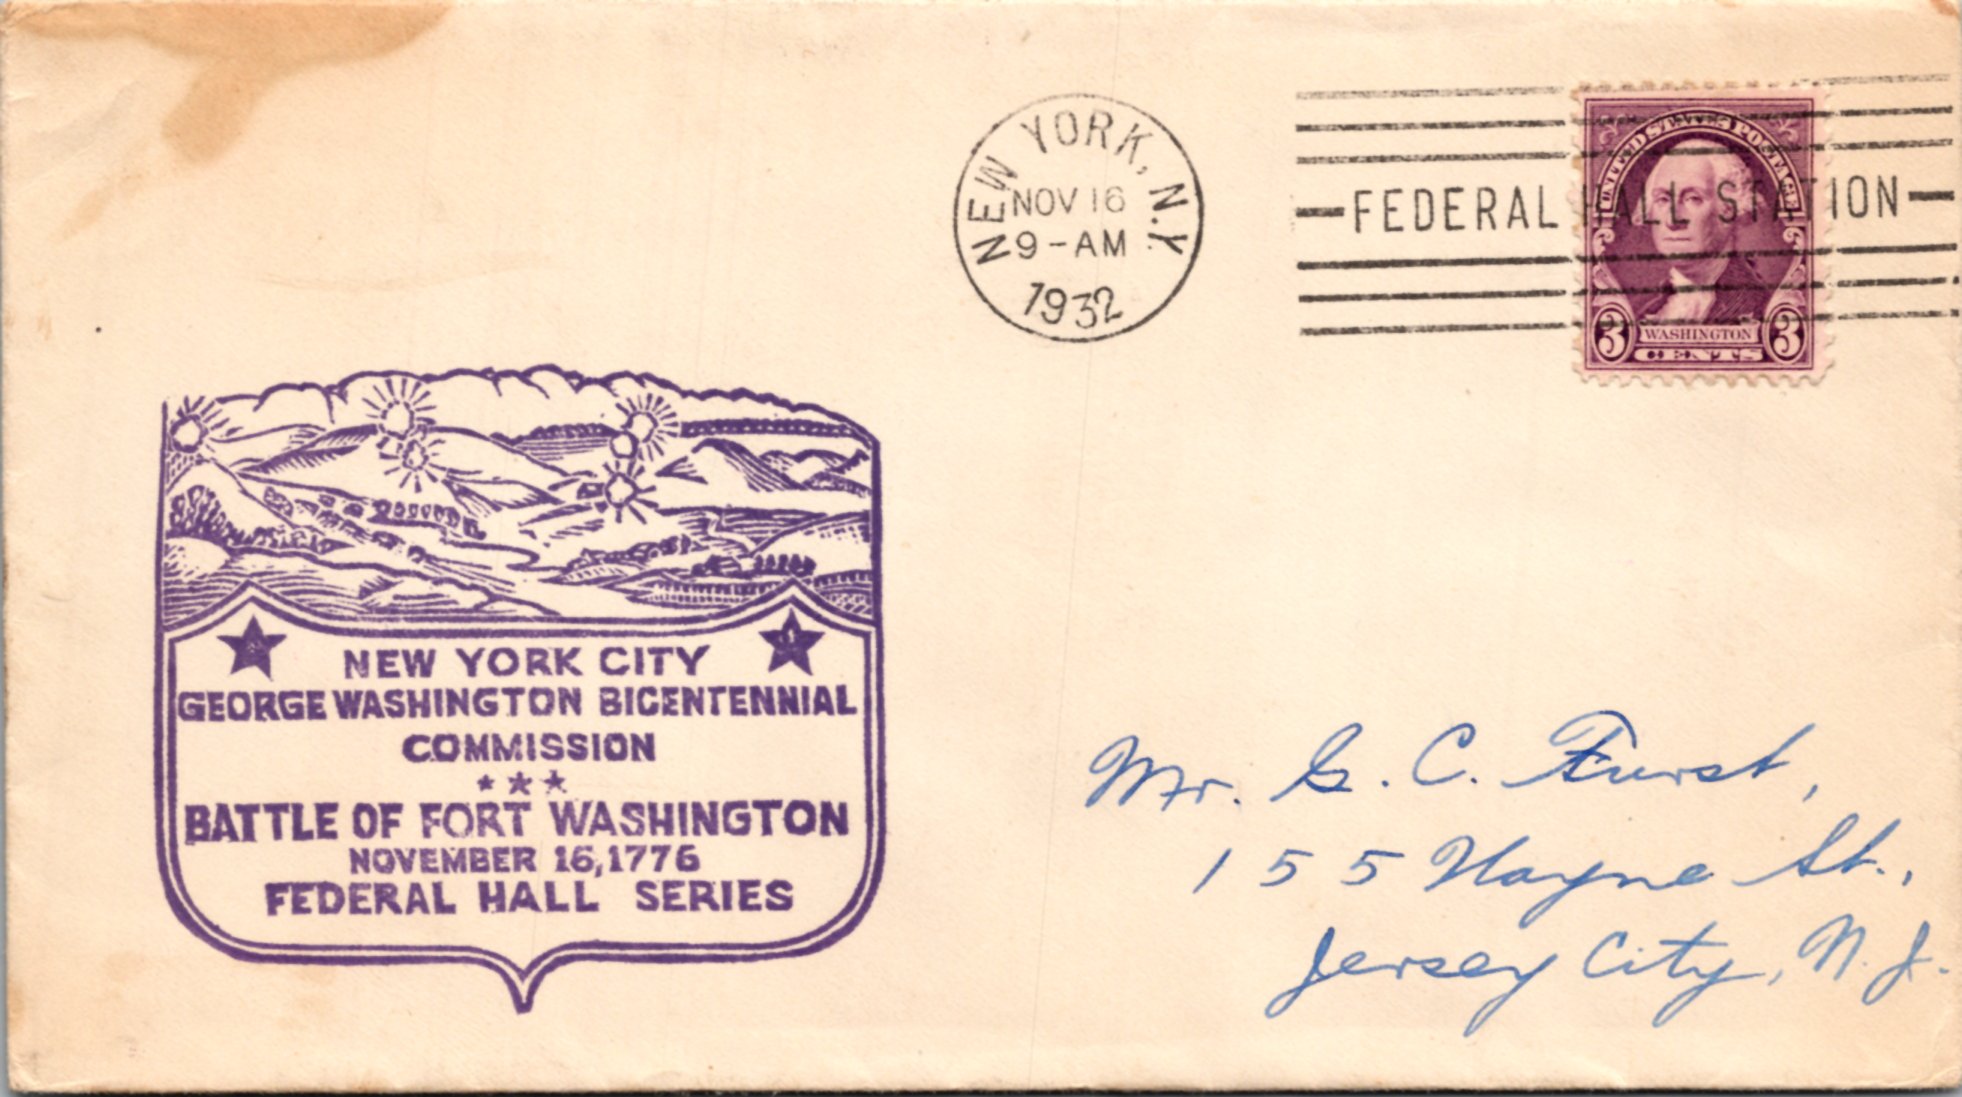 NEW YORK, N.Y.
NOV 16
9-AM
1932
FEDERAL HALL STATION
UNITED STATES POSTAGE
3 WASHINGTON 3
CENTS
NEW YORK CITY
GEORGE WASHINGTON BICENTENNIAL
COMMISSION
BATTLE OF FORT WASHINGTON
NOVEMBER 16, 1776
FEDERAL HALL SERIES
Mr. G. C. Furst,
155 Wayne St.,
Jersey City, N. J.